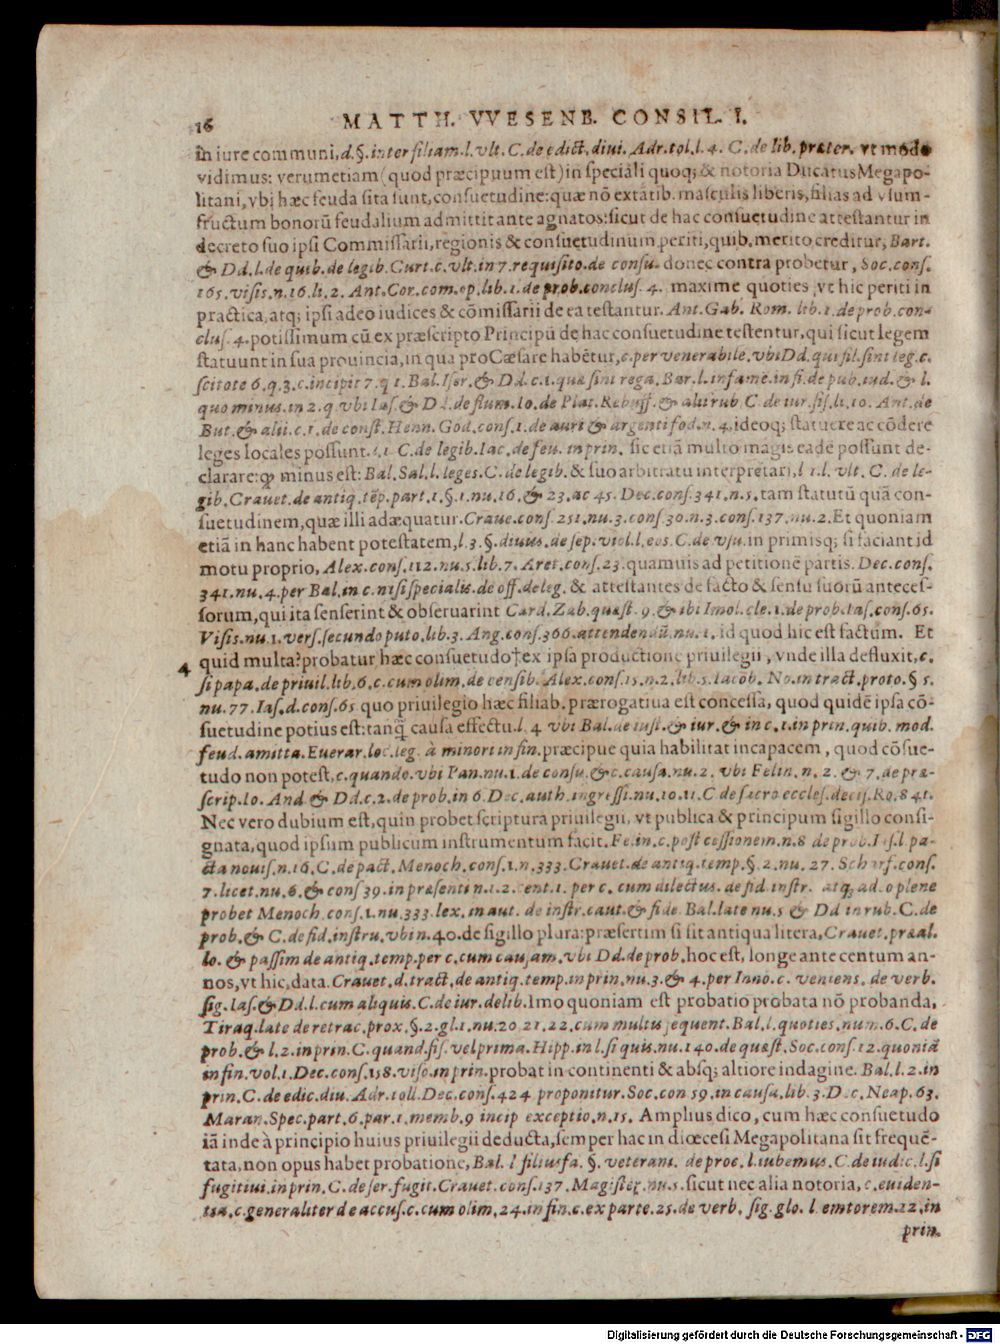 16 MATTH. VVESENB. CONSIL. I.
in iure communi, d. §. inter filiam. l. vlt. C. de edict. diui. Adr. tol. l. 4. C. de lib. præter. vt modo
vidimus: verumetiam (quod præcipuum est) in speciali quoq; & notoria Ducatus Megapo-
litani, vbi hæc feuda sita sunt, consuetudine: quæ nō extātib. masculis liberis, filias ad vsum-
fructum bonorū feudalium admittit ante agnatos: sicut de hac consuetudine attestantur in
decreto suo ipsi Commissarii, regionis & consuetudinum periti, quib. merito creditur, Bart.
& Dd. l. de quib. de legib. Curt. c. vlt. in 7. requisito. de consu. donec contra probetur, Soc. cons.
165. visis. n. 16. li. 2. Ant. Cor. com. op. lib. 1. de prob. conclus. 4. maxime quoties, vt hic periti in
practica, atq; ipsi adeo iudices & cōmissarii de ea testantur. Ant. Gab. Rom. lib. 1. de prob. con-
clus. 4. potissimum cū ex præscripto Principū de hac consuetudine testentur, qui sicut legem
statuunt in sua prouincia, in qua pro Cæsare habētur, c. per venerabile. vbi Dd. qui fil. sint leg. c.
scitote 6. q. 3. c. incipit 7. q 1. Bal. Iser. & Dd. c. 1. quæ sint rega. Bar. l. infame. in fi. de pub. iud. & l.
quo minus. in 2. q. vbi Ias. & Dd. de flum. Io. de Plat. Rebuff. & alii rub. C. de iur. fis. li. 10. Ant. de
But. & alii. c. 1. de const. Henn. God. cons. 1. de auri & argenti fod. n. 4. ideoq; statuere ac cōdere
leges locales possunt. l. 1. C. de legib. Iac. de feu. in prin. sic etiā multo magis eadē possunt de-
clarare: quod minus est: Bal. Sal. l. leges. C. de legib. & suo arbitratu interpretari, l 1. l. vlt. C. de le-
gib. Crauet. de antiq. tēp. part. 1. §. 1. nu. 16. & 23. ac 45. Dec. cons. 341. n. 5. tam statutū quā con-
suetudinem, quæ illi adæquatur. Craue. cons 251. nu. 3. cons. 30. n. 3. cons. 137. nu. 2. Et quoniam
etiā in hanc habent potestatem, l. 3. §. diuus. de sep. viol. l. eos. C. de vsu. in primisq; si faciant id
motu proprio, Alex. cons. 112. nu. 5. lib. 7. Aret. cons. 23. quamuis ad petitionē partis. Dec. cons.
341. nu. 4. per Bal. in c. nisi specialis. de off. deleg. & attestantes de facto & sensu suorū anteces-
sorum, qui ita senserint & obseruarint Card. Zab. quæst. 9. & ibi Imol. cle. 1. de prob. Ias. cons. 65.
Visis. nu. 1. vers. secundo puto. lib. 3. Ang. cons. 366. attendendū. nu. 1. id quod hic est factum. Et
4 quid multa? probatur hæc consuetudo † ex ipsa productione priuilegii, vnde illa defluxit, c.
si papa. de priuil. lib. 6. c. cum olim. de censib. Alex. cons. 15. n. 2. lib. 5. Iacob. No. in tract. proto. § 5.
nu. 77. Ias. d. cons. 65 quo priuilegio hæc filiab. prærogatiua est concessa, quod quidē ipsa cō-
suetudine potius est: tanq̃ causa effectu. l. 4 vbi Bal. de iust. & iur. & in c. 1. in prin. quib. mod.
feud. amitta. Euerar. loc. leg. à minori in fin. præcipue quia habilitat incapacem, quod cōsue-
tudo non potest, c. quando. vbi Pan. nu. 1. de consu. & c. causa. nu. 2. vbi Felin. n. 2. & 7. de præ-
scrip. Io. And & Dd. c. 2. de prob. in 6. Dec. auth. ingressi. nu. 10. 11. C de sacro eccles. decis. Ro. 841.
Nec vero dubium est, quin probet scriptura priuilegii, vt publica & principum sigillo consi-
gnata, quod ipsum publicum instrumentum facit. Fe. in. c. post cessionem. n. 8 de prob. Ias. l. pa-
cta nouis. n. 16. C. de pact. Menoch. cons. 1. n. 333. Crauet. de antiq. temp. §. 2. nu. 27. Scharf. cons.
7. licet. nu. 6. & cons 39. in præsenti n. 1. 2. cent. 1. per c. cum dilectus. de fid. instr. atq; adeo plene
probet Menoch. cons. 1. nu. 333. lex. in aut. de instr. caut. & fide. Bal. late nu. 5 & Dd in rub. C. de
prob. & C. de fid. instru. vbi n. 40. de sigillo plura: præsertim si sit antiqua litera, Crauet. præal.
lo. & passim de antiq. temp. per c. cum causam. vbi Dd. de prob. hoc est, longe ante centum an-
nos, vt hic, data. Crauet. d. tract. de antiq. temp. in prin. nu. 3. & 4. per Inno. c. veniens. de verb.
sig. Ias. & Dd. l. cum aliquis. C. de iur. delib. Imo quoniam est probatio probata nō probanda,
Tiraq. late de retrac. prox. §. 2. gl. 1. nu. 20 21. 22. cum multis sequent. Bal. l. quoties. num. 6. C. de
prob. & l. 2. in prin. C. quand. fis. vel prima. Hipp. in l. si quis. nu. 140. de quæst. Soc. cons. 12. quoniā
in fin. vol. 1. Dec. cons. 158. viso. in prin. probat in continenti & absq; altiore indagine. Bal. l. 2. in
prin. C. de edic. diu. Adr. toll. Dec. cons. 424 proponitur. Soc. con 59. in causa. lib. 3. Dec. Neap. 63.
Maran. Spec. part. 6. par. 1. memb. 9 incip exceptio. n. 15. Amplius dico, cum hæc consuetudo
iā inde à principio huius priuilegii deducta, semper hac in diœcesi Megapolitana sit frequē-
tata, non opus habet probatione, Bal. l filiusfa. §. veterani. de proc. l. iubemus. C. de iudic. l. si
fugitiui. in prin. C. de ser. fugit. Crauet. cons. 137. Magister. nu. 5. sicut nec alia notoria, c. euiden-
tia. c. generaliter de accus. c. cum olim. 24. in fin. c. ex parte. 25. de verb. sig. glo. l emtorem. 12. in
prin.
Digitalisierung gefördert durch die Deutsche Forschungsgemeinschaft - DFG